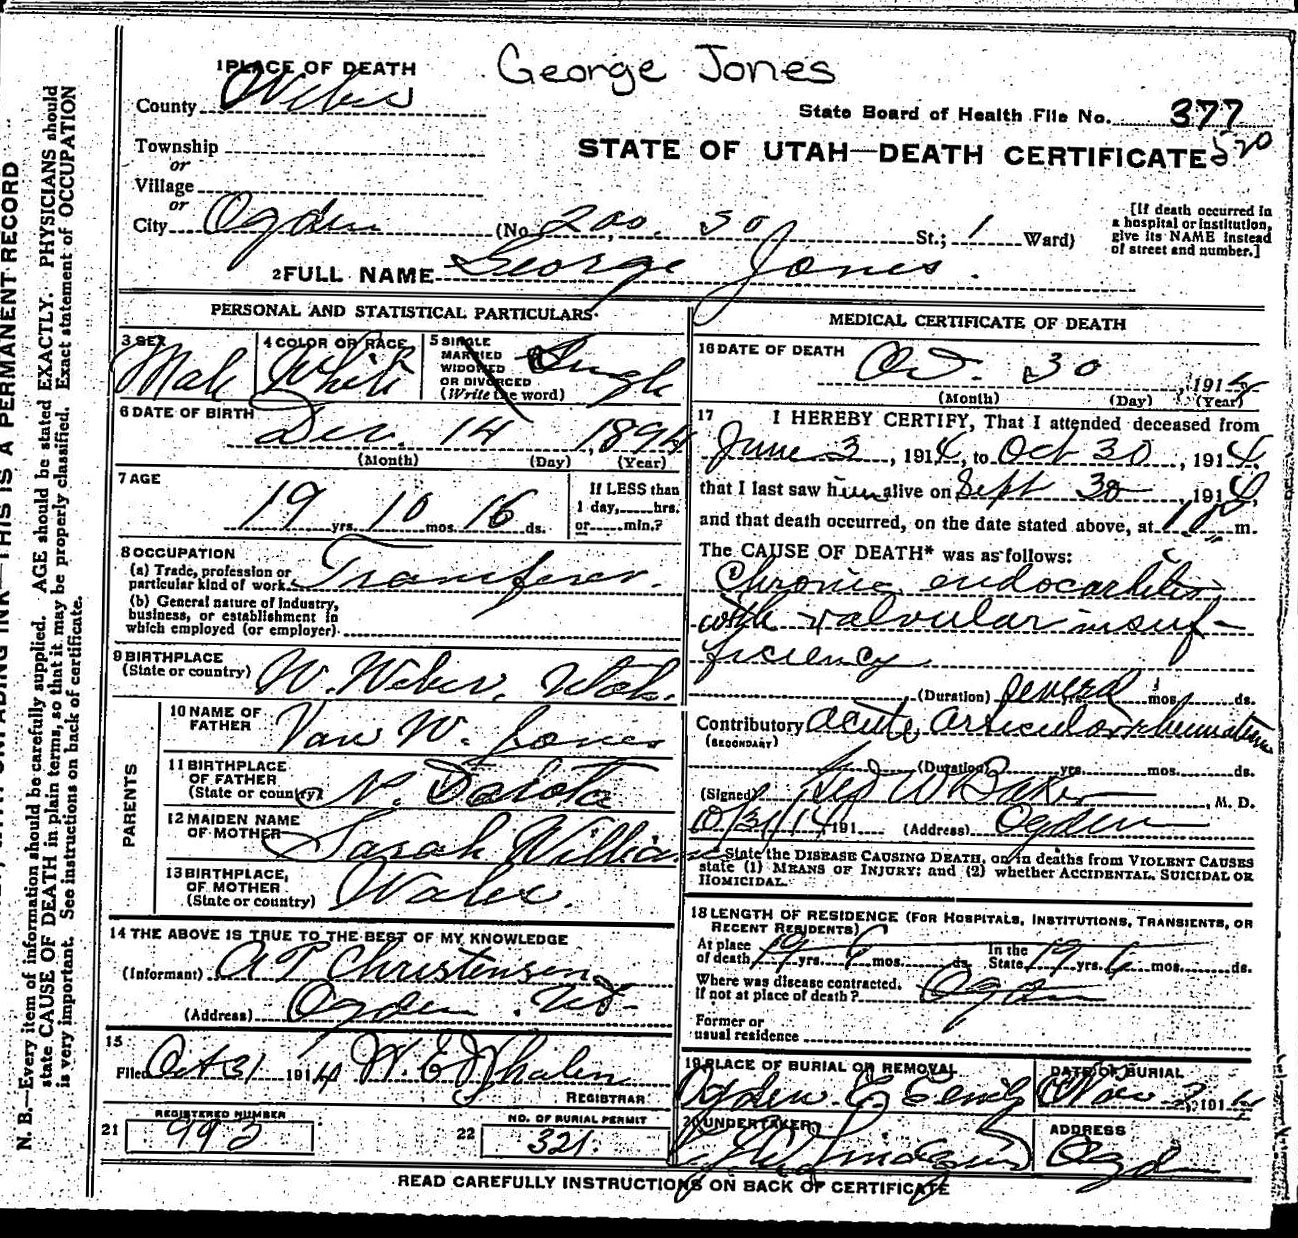 George Jones
1 PLACE OF DEATH
County Weber
State Board of Health File No. 377
520
Township
or
Village
or
STATE OF UTAH—DEATH CERTIFICATE
City Ogden (No. 200. 30 St.; 1 Ward)
[If death occurred in
a hospital or institution,
give its NAME instead
of street and number.]
2 FULL NAME George Jones.
PERSONAL AND STATISTICAL PARTICULARS
3 SEX Male
4 COLOR OR RACE White
5 SINGLE
MARRIED
WIDOWED
OR DIVORCED
(Write the word)
Single
6 DATE OF BIRTH
Dec. 14, 1894
(Month) (Day) (Year)
7 AGE
19 yrs. 10 mos. 16 ds.
If LESS than
1 day, hrs.
or min.?
8 OCCUPATION
(a) Trade, profession or
particular kind of work
(b) General nature of industry,
business, or establishment in
which employed (or employer)
9 BIRTHPLACE
(State or country) W. Weber, Utah.
PARENTS
10 NAME OF
FATHER Van W. Jones
11 BIRTHPLACE
OF FATHER
(State or country) N. Dakota
12 MAIDEN NAME
OF MOTHER Sarah Williams
13 BIRTHPLACE,
OF MOTHER
(State or country) Wales.
14 THE ABOVE IS TRUE TO THE BEST OF MY KNOWLEDGE
(Informant) A P Christensen
(Address) Ogden. Ut.
15
Filed Oct 31 1914 W. E. Whalen
REGISTRAR
21 REGISTERED NUMBER
993
22 NO. OF BURIAL PERMIT
321.
MEDICAL CERTIFICATE OF DEATH
16 DATE OF DEATH
Oct. 30, 1914
(Month) (Day) (Year)
17 I HEREBY CERTIFY, That I attended deceased from
June 3, 1914, to Oct 30, 1914.
that I last saw him alive on Sept 30, 1914,
and that death occurred, on the date stated above, at m.
The CAUSE OF DEATH* was as follows:
Chronic endocarditis
with valvular insuf-
ficiency
(Duration) several yrs. mos. ds.
Contributory acute articular rheumatism
(SECONDARY)
(Duration) yrs. mos. ds.
(Signed) W Baker, M. D.
10/31/14 191 (Address) Ogden
* State the DISEASE CAUSING DEATH, or, in deaths from VIOLENT CAUSES
state (1) MEANS OF INJURY; and (2) whether ACCIDENTAL, SUICIDAL OR
HOMICIDAL.
18 LENGTH OF RESIDENCE (FOR HOSPITALS, INSTITUTIONS, TRANSIENTS, OR
RECENT RESIDENTS)
At place
of death 19 yrs. 6 mos. ds.
In the
State 19 yrs. 6 mos. ds.
Where was disease contracted,
if not at place of death? Ogden
Former or
usual residence
19 PLACE OF BURIAL OR REMOVAL
Ogden
DATE OF BURIAL
Nov 2, 1914
20 UNDERTAKER
ADDRESS
READ CAREFULLY INSTRUCTIONS ON BACK OF CERTIFICATE
THIS IS A PERMANENT RECORD
N. B.—Every item of information should be carefully supplied. AGE should be stated EXACTLY. PHYSICIANS should
state CAUSE OF DEATH in plain terms, so that it may be properly classified. Exact statement of OCCUPATION
is very important. See instructions on back of certificate.